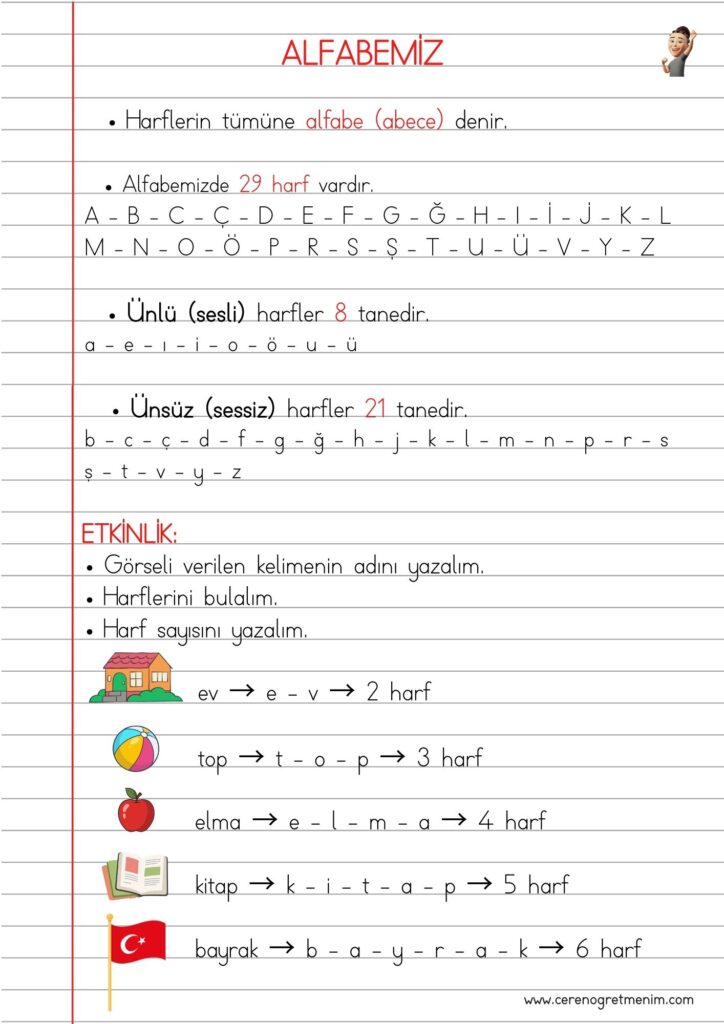 ALFABEMİZ
• Harflerin tümüne alfabe (abece) denir.
• Alfabemizde 29 harf vardır.
A - B - C - Ç - D - E - F - G - Ğ - H - I - İ - J - K - L
M - N - O - Ö - P - R - S - Ş - T - U - Ü - V - Y - Z
• Ünlü (sesli) harfler 8 tanedir.
a - e - ı - i - o - ö - u - ü
• Ünsüz (sessiz) harfler 21 tanedir.
b - c - ç - d - f - g - ğ - h - j - k - l - m - n - p - r - s
ş - t - v - y - z
ETKİNLİK:
• Görseli verilen kelimenin adını yazalım.
• Harflerini bulalım.
• Harf sayısını yazalım.
ev → e - v → 2 harf
top → t - o - p → 3 harf
elma → e - l - m - a → 4 harf
kitap → k - i - t - a - p → 5 harf
bayrak → b - a - y - r - a - k → 6 harf
www.cerenogretmenim.com